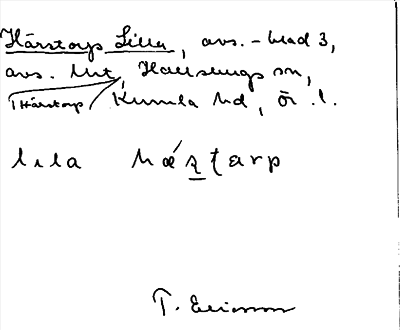 Hårstorps Lilla, avs. - blad 3,
avs. Mt, Hallsbergs sn,
i Hårstorp Kumla hd, Ör. l.
lɩla há̱ʂtarp
T. Ericsson